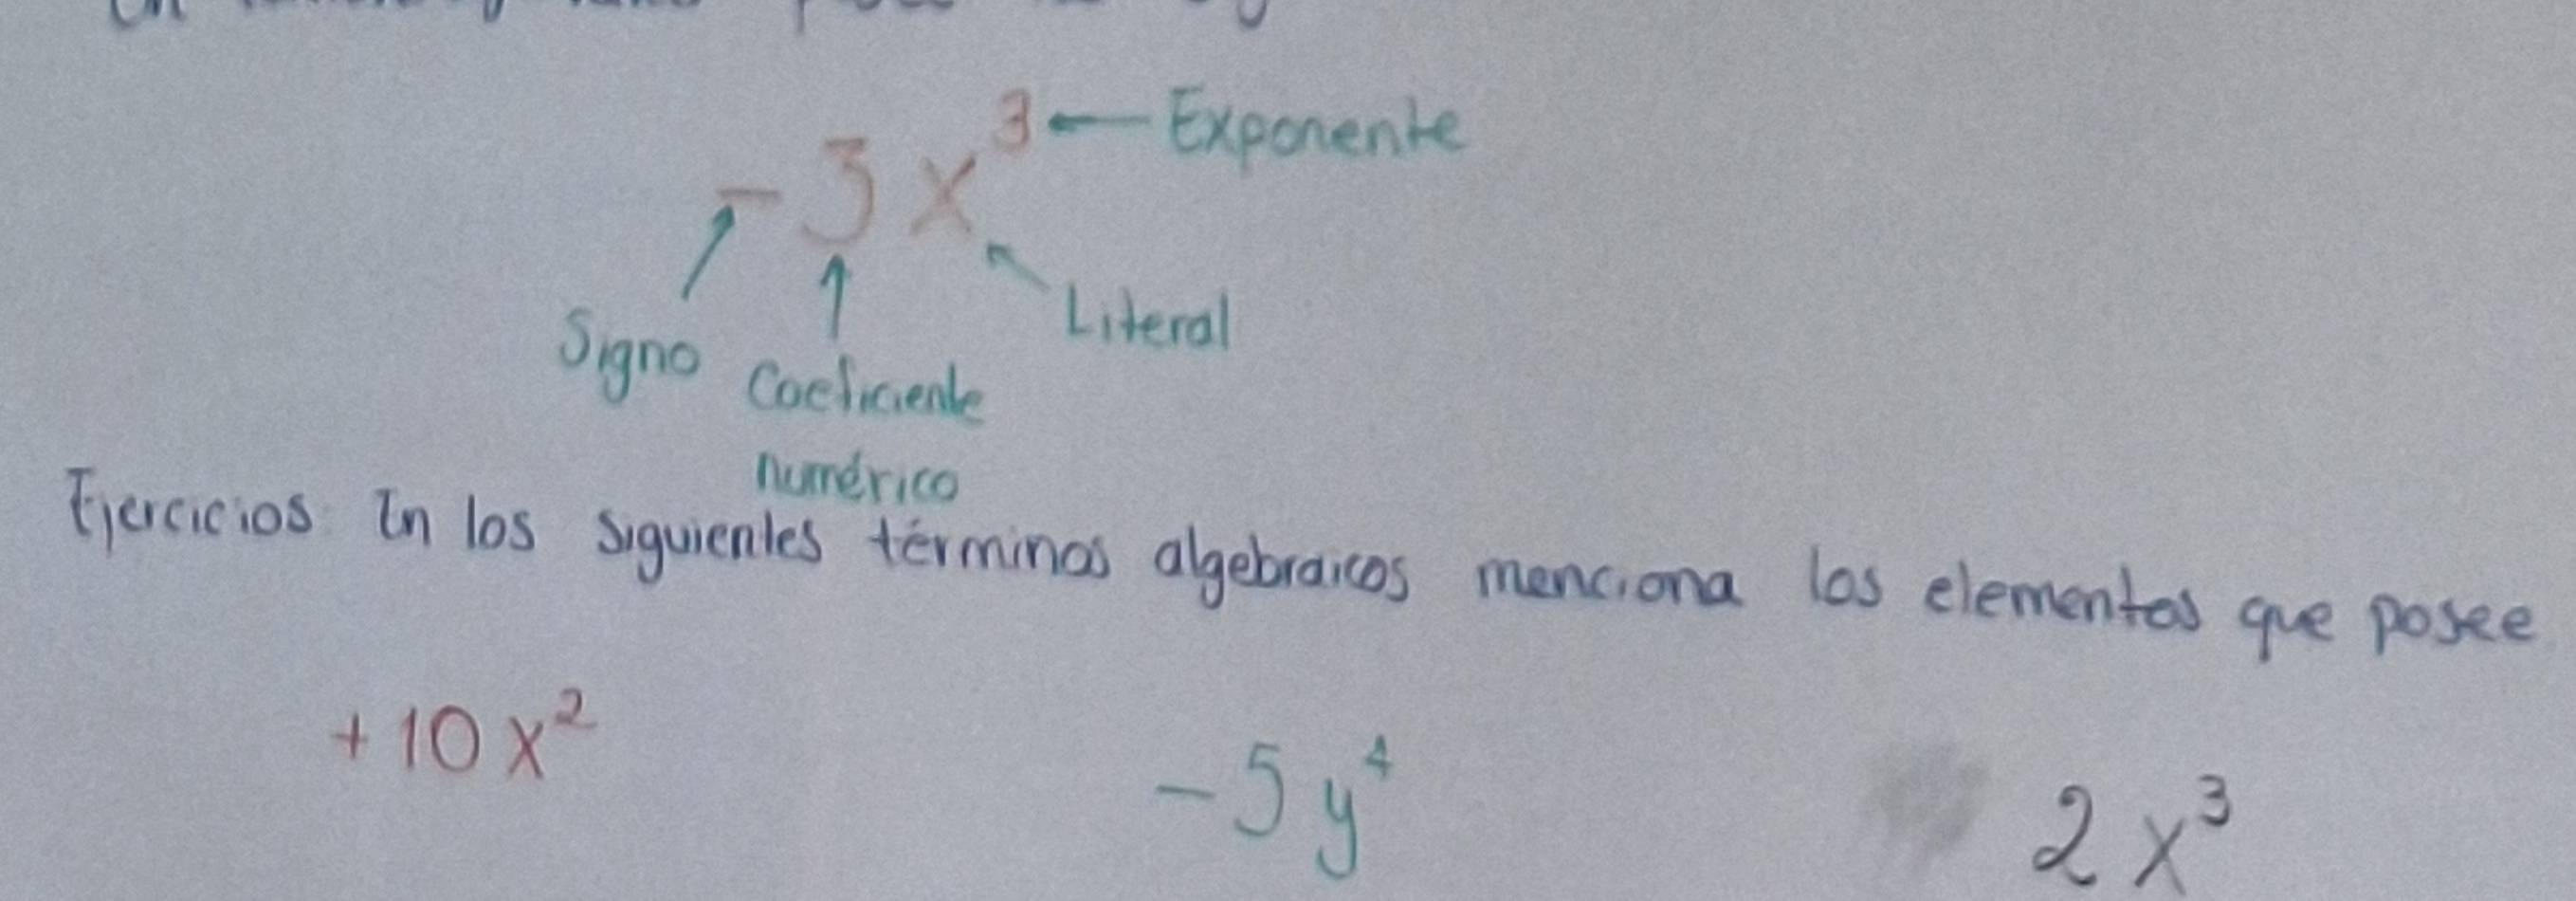 -3x³ ← Exponente
Signo Coeficiente Literal
numérico
Ejercicios: En los siguientes términos algebraicos menciona los elementos que posee
+10x² -5y⁴ 2x³